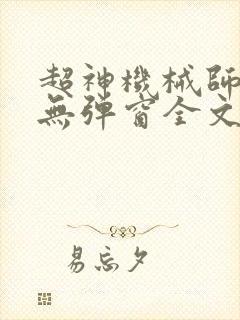 超神機械師
無彈窗全文
易忘夕